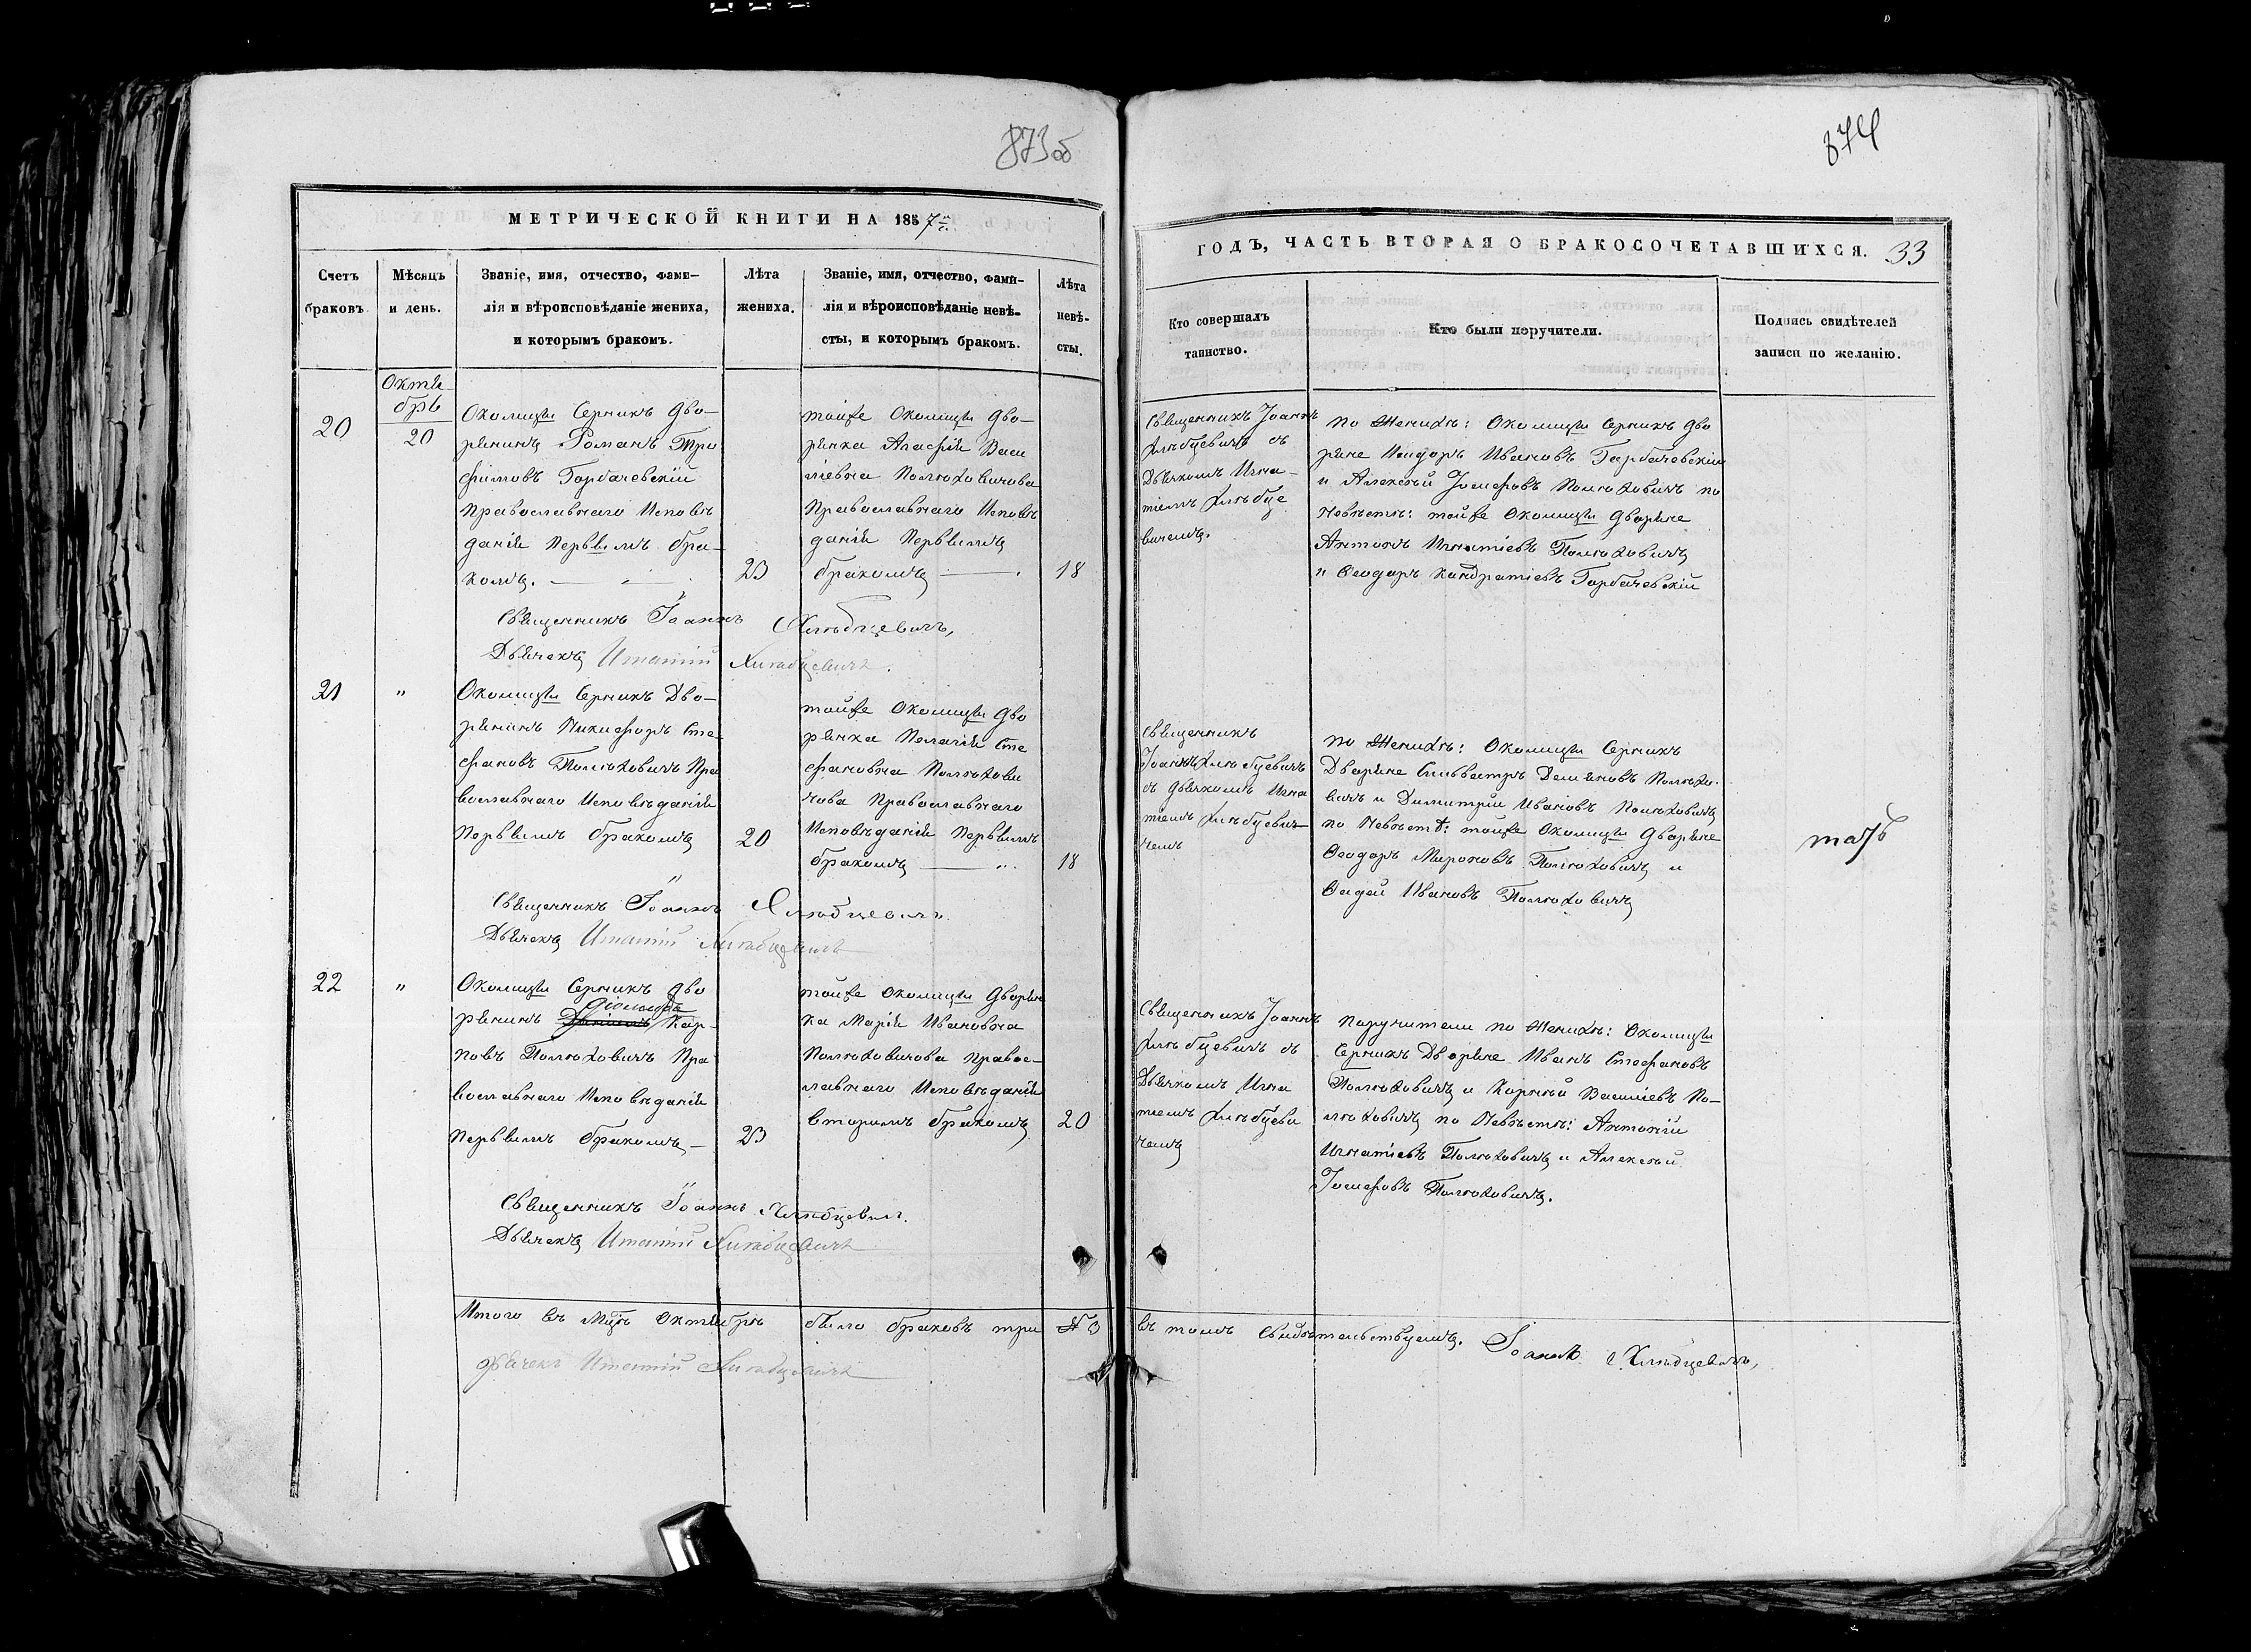 873 об
874
МЕТРИЧЕСКОЙ КНИГИ НА 1857 й
ГОДЪ, ЧАСТЬ ВТОРАЯ О БРАКОСОЧЕТАВШИХСЯ. 33
Счетъ
браковъ
Мѣсяцъ
и день.
Званіе, имя, отчество, фами-
лія и вѣроисповѣданіе жениха,
и которымъ бракомъ.
Лѣта
жениха.
Званіе, имя, отчество, фами-
лія и вѣроисповѣданіе невѣ-
сты, и которымъ бракомъ.
Лѣта
невѣ-
сты.
Кто совершалъ
таинство.
Кто были поручители.
Подпись свидѣтелей
записи по желанію.
20
Октя
брь
20
Околицы Серникъ Дво-
рянинъ Романъ Тро
фимовъ Горбачевскій
Православнаго Исповѣ
данія Первымъ бра-
комъ.
23
тойже Околицы Дво-
рянка Агафія Васи
ліевна Полюховичова
Православнаго Исповѣ
данія Первымъ
бракомъ
18
Священникъ Іоаннъ
Хлѣбцевичъ съ
Дьячкомъ Игна-
тіемъ Хлѣбце
вичемъ.
По Женихѣ: Околицы Серникъ Дво
ряне Исидоръ Ивановъ Горбачевскій
и Алексѣй Іосифовъ Полюховичъ по
Невѣстѣ: тойже Околицы Дворяне
Антонъ Игнатіевъ Полюховичъ
и Ѳеодоръ Кондратіевъ Горбачевскій
Священникъ Іоаннъ Хлѣбцевичъ,
Дьячекъ Игнатій Хлѣбцевичъ.
21
"
Околицы Серникъ Дво-
рянинъ Никифоръ Сте
фановъ Полюховичъ Пра
вославнаго Исповѣданія
Первымъ бракомъ
20
тойже Околицы Дво
рянка Пелагія Сте
фановна Полюхови
чова Православнаго
Исповѣданія Первымъ
бракомъ
18
Священникъ
Іоаннъ Хлѣбцевичъ
съ Дьячкомъ Игна
тіемъ Хлѣбцеви
чемъ
По Женихѣ: Околицы Серникъ
Дворяне Сильвестръ Демяновъ Полюхо-
вичъ и Димитрій Ивановъ Полюховичъ
по Невѣстѣ: тойже Околицы Дворяне
Ѳеодоръ Мироновъ Полюховичъ и
Ѳадей Ивановъ Полюховичъ
Священникъ Іоаннъ Хлѣбцевичъ.
Дьячекъ Игнатій Хлѣбцевичъ
22
"
Околицы Серникъ Дво
рянинъ Кар-
повъ Полюховичъ Пра
вославнаго Исповѣданія
Первымъ бракомъ
23
тойже Околицы Дворян
ка Марія Ивановна
Полюховичова Правос-
лавнаго Исповѣданія
вторымъ бракомъ
20
Священникъ Іоаннъ
Хлѣбцевичъ съ
Дьячкомъ Игна
тіемъ Хлѣбцеви
чемъ
Поручители по Женихѣ: Околицы
Серникъ Дворяне Иванъ Стефановъ
Полюховичъ и Корнѣй Василіевъ По-
люховичъ по Невѣстѣ: Антоній
Игнатіевъ Полюховичъ и Алексѣй
Іосифовъ Полюховичъ.
Священникъ Іоаннъ Хлѣбцевичъ.
Дьячекъ Игнатій Хлѣбцевичъ
Итого въ Мцѣ Октябрѣ было браковъ три № 3 въ томъ свидѣтельствуемъ. Іоаннъ Хлѣбцевичъ,
Дьячекъ Игнатій Хлѣбцевичъ